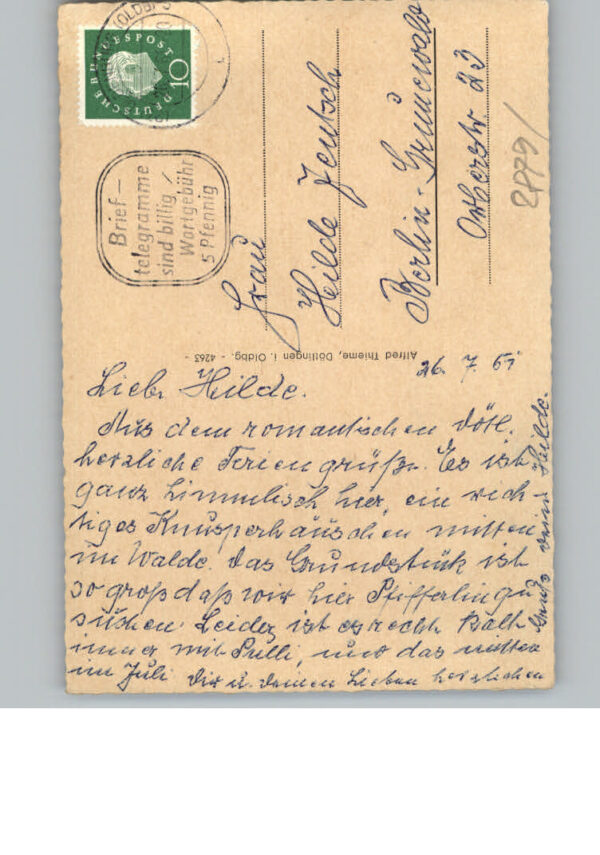 (OLDB)
DEUTSCHE BUNDESPOST
10
Brief-
telegramme
sind billig /
Wortgebühr
5 Pfennig
Frau
Hilde Jentsch
Berlin-Grunewald
23
2879/
Alfred Thieme, Dötlingen i. Oldbg. - 4263 -
26. 7. 61
Liebe Hilde.
Aus dem romantischen Dötl.
herzliche Feriengrüße. Es ist
ganz himmlisch hier, ein rich
tiges Knusperhäuschen mitten
im Walde. Das Grundstük ist
so groß daß wir hier Pfifferlinge
suchen. Leider ist es recht kalt
immer mit Pulli, und das mitten
im Juli Dir u. Deinen Lieben herzlichen
Gruß Deine Hilde.